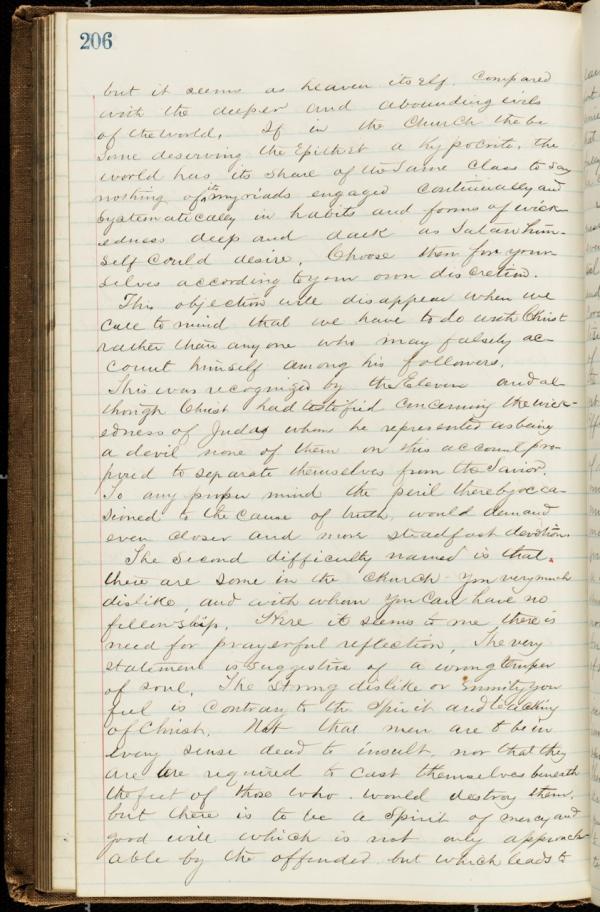 206
but it seems as heaven itself. Compared
with the deeper and abounding evils
of the world. If in the Church the be
some deserving the Epithet a hypocrite, the
world has its share of the same class to say
nothing of its myriads engaged continually and
systematically in habits and forms of wick-
edness deep and dark as Satan him-
self could desire. Choose then for your-
selves according to your own discretion.
This objection will disappear when we
call to mind that we have to do with Christ
rather than any one who may falsely ac-
count himself among his followers.
This was recognized by the Eleven and al-
though Christ had testified concerning the wick-
edness of Judas whom he represented as being
a devil none of them on this account pro-
posed to separate themselves from the Savior.
To any proper mind the peril thereby occa-
sioned to the cause of truth, would demand
even closer and more steadfast devotion.
The second difficulty named is that,
there are some in the church you very much
dislike, and with whom you can have no
fellowship. Here it seems to me there is
need for prayerful reflection. The very
statement is suggestive of a wrong temper
of soul. The strong dislike or enmity you
feel is contrary to the Spirit and teaching
of Christ. Not that men are to be in
every sense dead to insult, nor that they
are required to cast themselves beneath
the feet of those who would destroy them,
but there is to be a Spirit of mercy and
good will which is not only approach-
able by the offended but which leads to